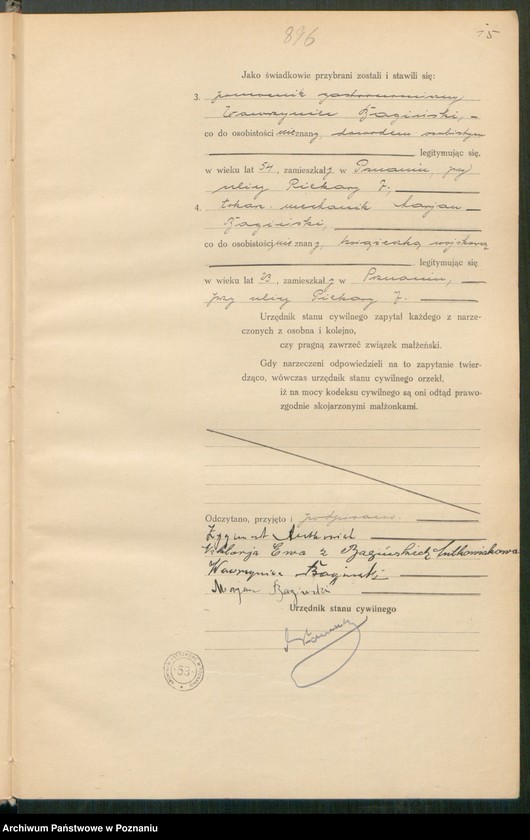 896
Jako świadkowie przybrani zostali i stawili się:
3. pomocnik
Wawrzyniec Bagiński, –
co do osobistości nieznany, dowodem osobistym
legitymując się,
w wieku lat 54, zamieszkały w Poznaniu, przy
ulicy Piekary 7,
4. tokarz-mechanik Marjan
Bagiński,
co do osobistości nieznany, książeczką wojskową
legitymując się
w wieku lat 23, zamieszkały w Poznaniu,
przy ulicy Piekary 7.
Urzędnik stanu cywilnego zapytał każdego z narze-
czonych z osobna i kolejno,
czy pragną zawrzeć związek małżeński.
Gdy narzeczeni odpowiedzieli na to zapytanie twier-
dząco, wówczas urzędnik stanu cywilnego orzekł,
iż na mocy kodeksu cywilnego są oni odtąd prawo-
zgodnie skojarzonymi małżonkami.
Odczytano, przyjęto i podpisano.
Zygmunt
Wiktorja Ewa z Bagińskich Lutkowiakowa
Wawrzyniec Bagiński
Marjan Bagiński
Urzędnik stanu cywilnego
53
Archiwum Państwowe w Poznaniu